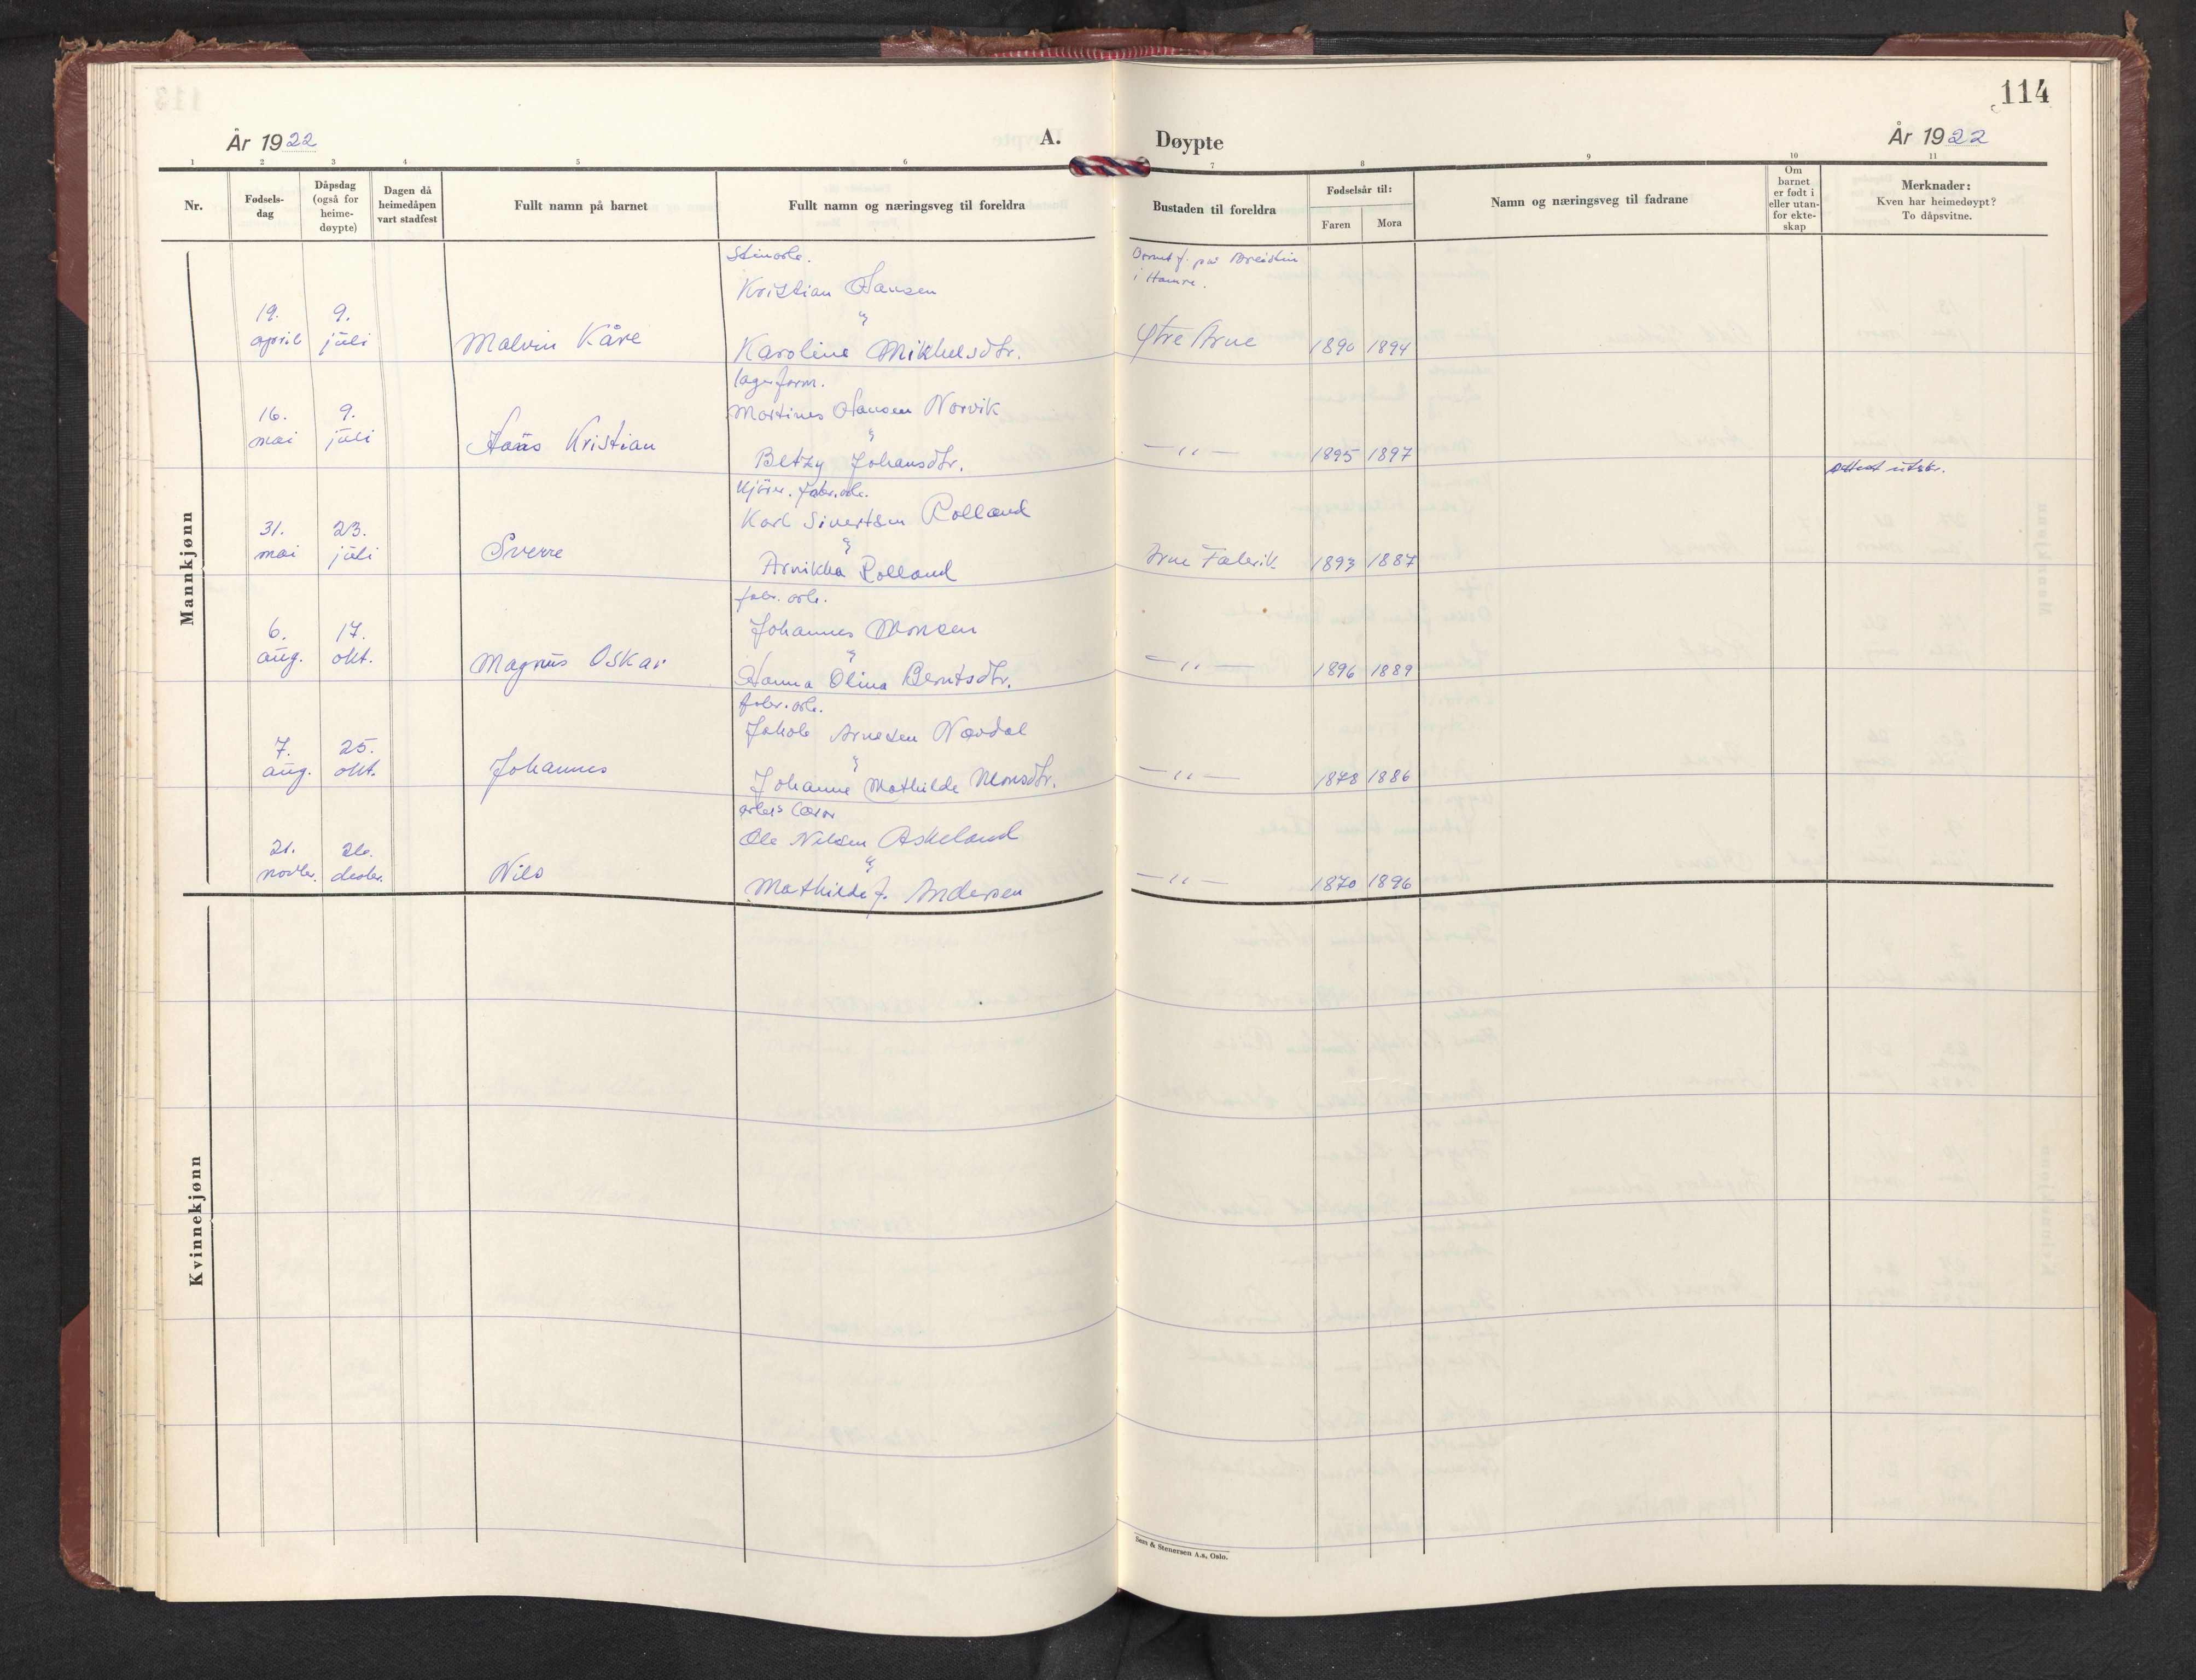 114
År 1922 A. Døypte År 1922
1 2 3 4 5 6 7 8 9 10 11
Nr.
Fødsels-
dag
Dåpsdag
(også for
heime-
døypte)
Dagen då
heimedåpen
vart stadfest
Fullt namn på barnet
Fullt namn og næringsveg til foreldra
Bustaden til foreldra
Fødselsår til:
Faren Mora
Namn og næringsveg til fadrane
Om
barnet
er født i
eller utan-
for ekte-
skap
Merknader:
Kven har heimedøypt?
To dåpsvitne.
Mannkjønn
i Hamre.
Kristian Hansen
19. april 9. juli Malvin Kåre Karoline Mikkelsdtr. Ytre Arne 1890 1894
lagerform.
Martines Hansen Norvik
16. mai 9. juli Hans Kristian Betzy Johansdtr. — ,, — 1895 1897
Attest utskr.
Karl Sivertsen Rolland
31. mai 23. juli Sverre Arnikka Rolland Arne Fabrik 1893 1887
fabr. arb.
Johannes Monsen
6. aug. 17. okt. Magnus Oskar Hanna Olina Berntsdtr. — ,, — 1896 1889
fabr. arb.
Jakob Arnesen Navdal
7. aug. 25. okt. Johannes Johanne Mathilde Monsdtr. — ,, — 1878 1886
Ole Nilsen Askeland
21. novbr. 26. desbr. Nils Mathilde J. Andersen — ,, — 1870 1896
Kvinnekjønn
Sem & Stenersen A.s, Oslo.